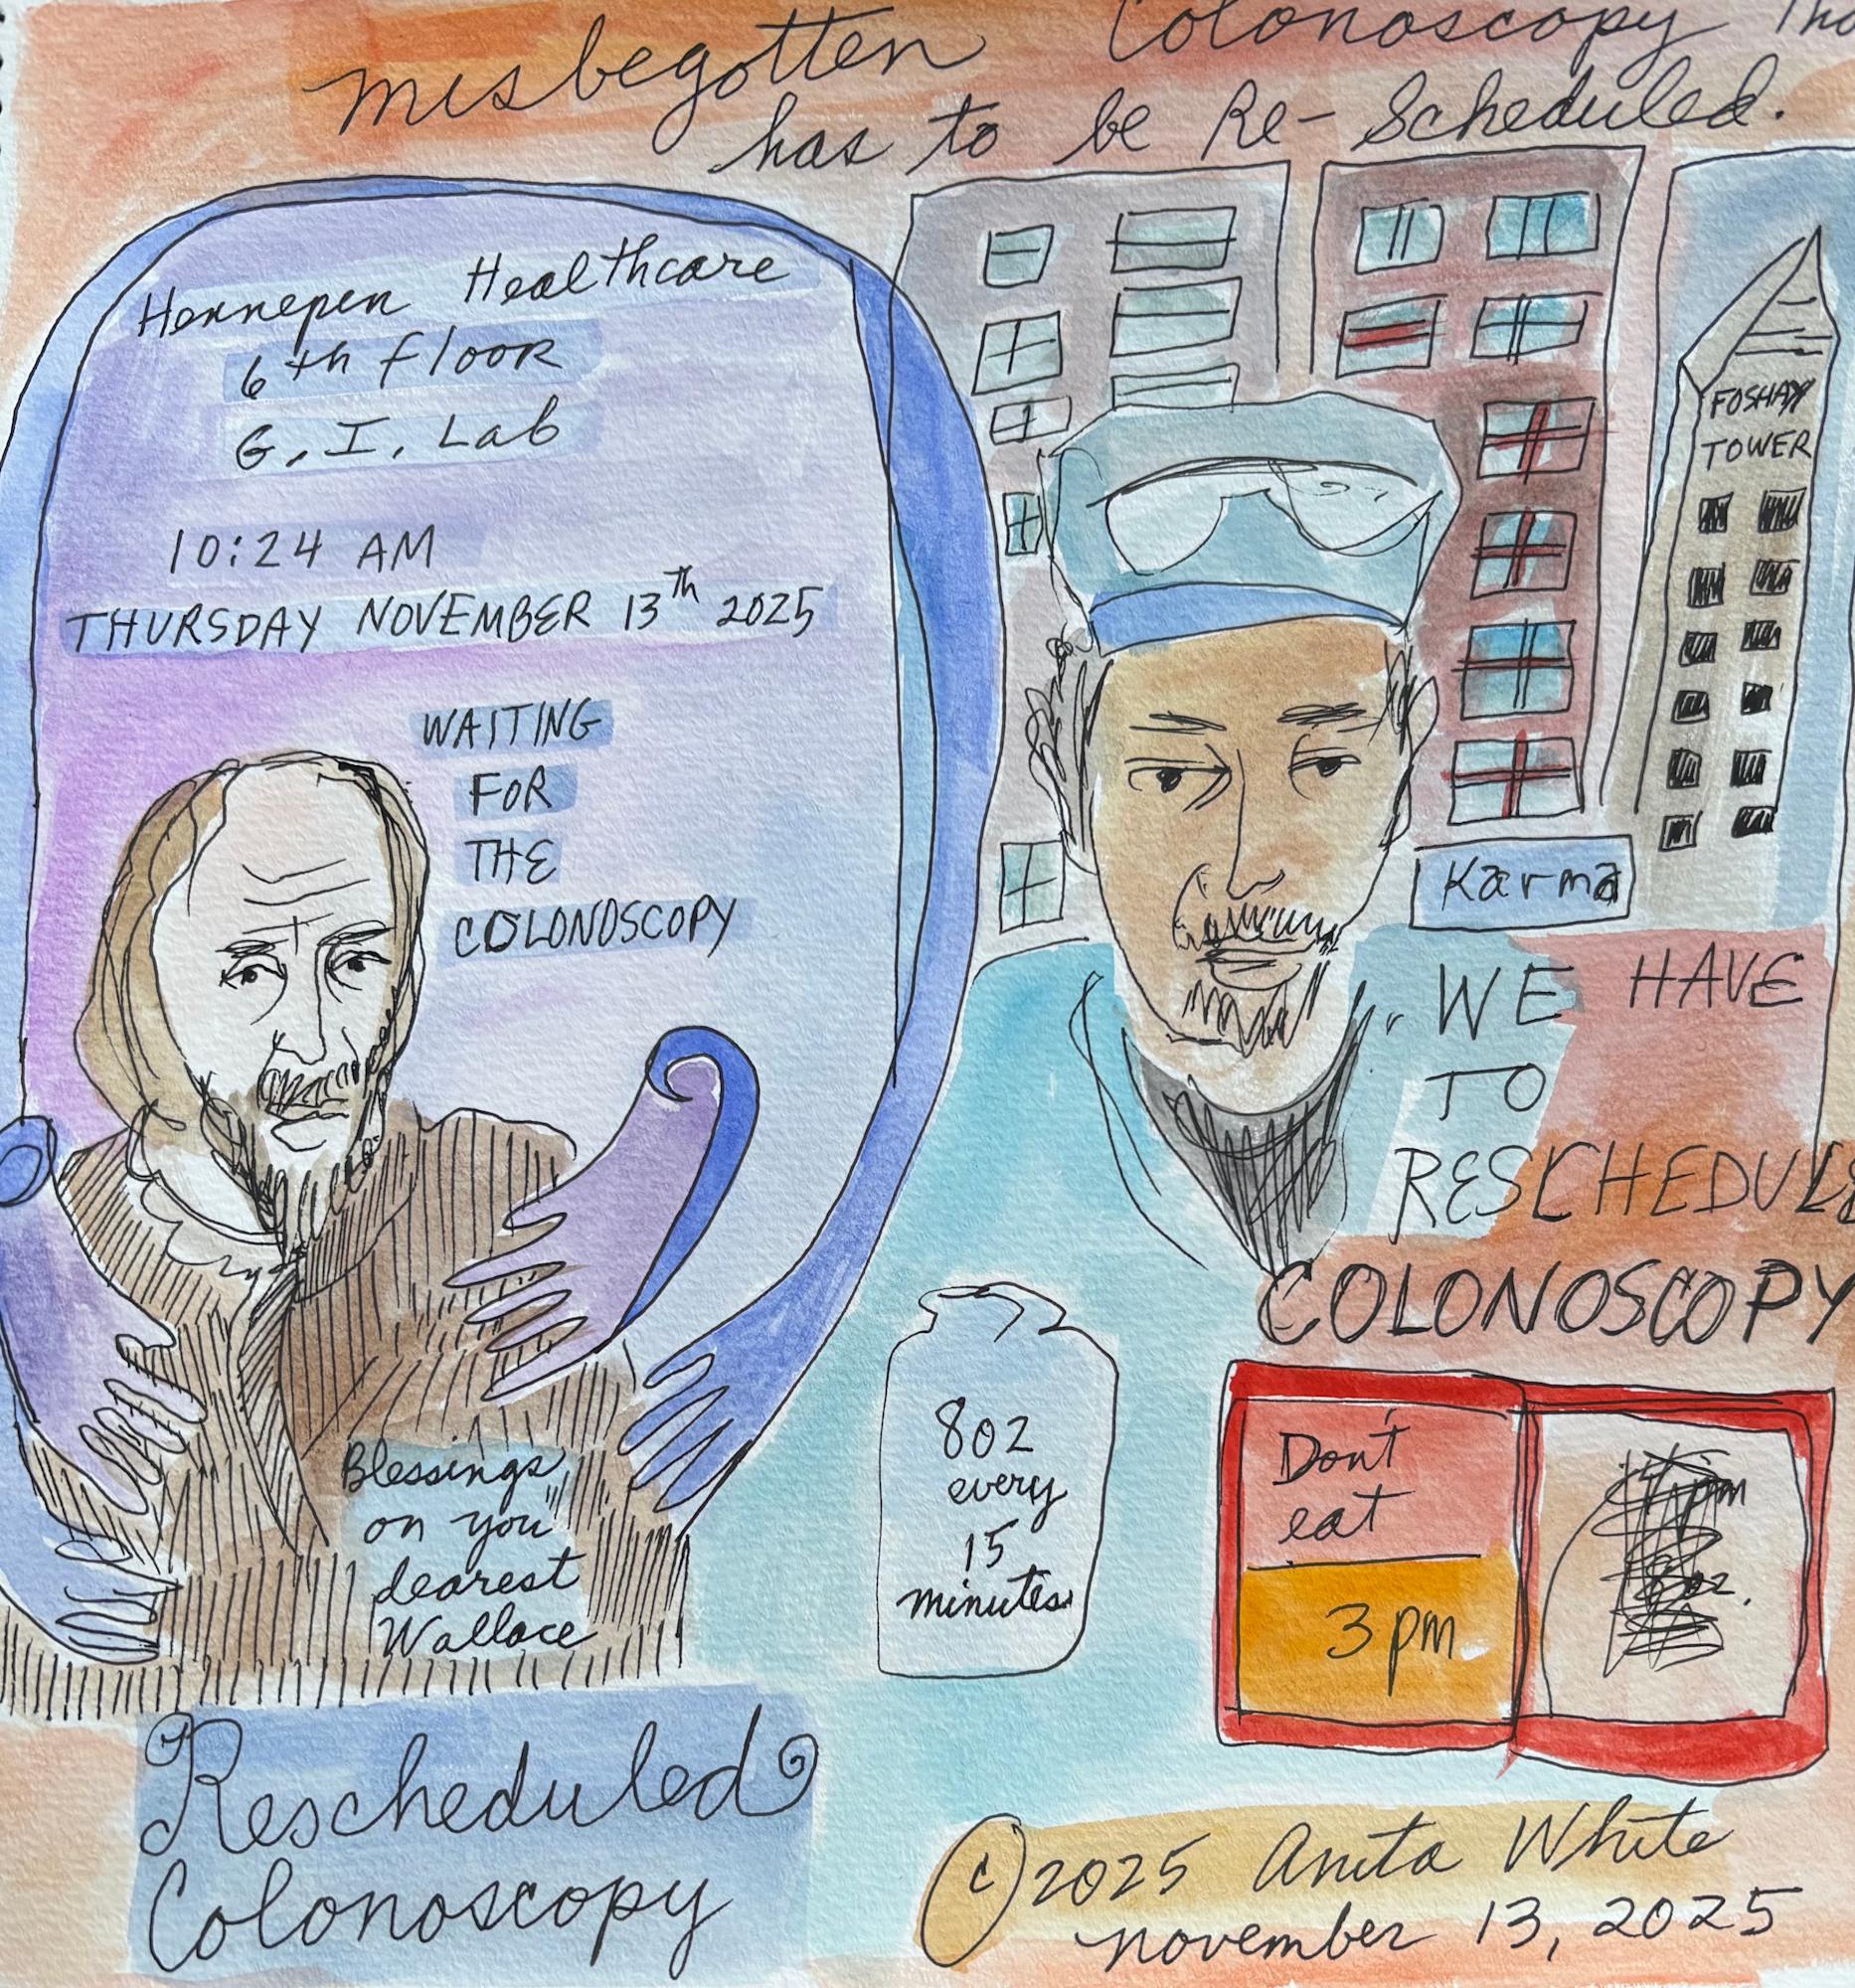 misbegotten Colonoscopy Tha
has to be Re-Scheduled.
Hennepen Healthcare
6th floor
G. I. Lab
10:24 AM
THURSDAY NOVEMBER 13th 2025
WAITING
FOR
THE
COLONOSCOPY
Blessings
on you
dearest
Wallace
Rescheduled
Colonoscopy
FOSHAY
TOWER
Karma
"WE HAVE
TO
RESCHEDULE
COLONOSCOPY
8oz
every
15
minutes
Don't
eat
3 pm
pm
8oz.
©2025 Anita White
november 13, 2025